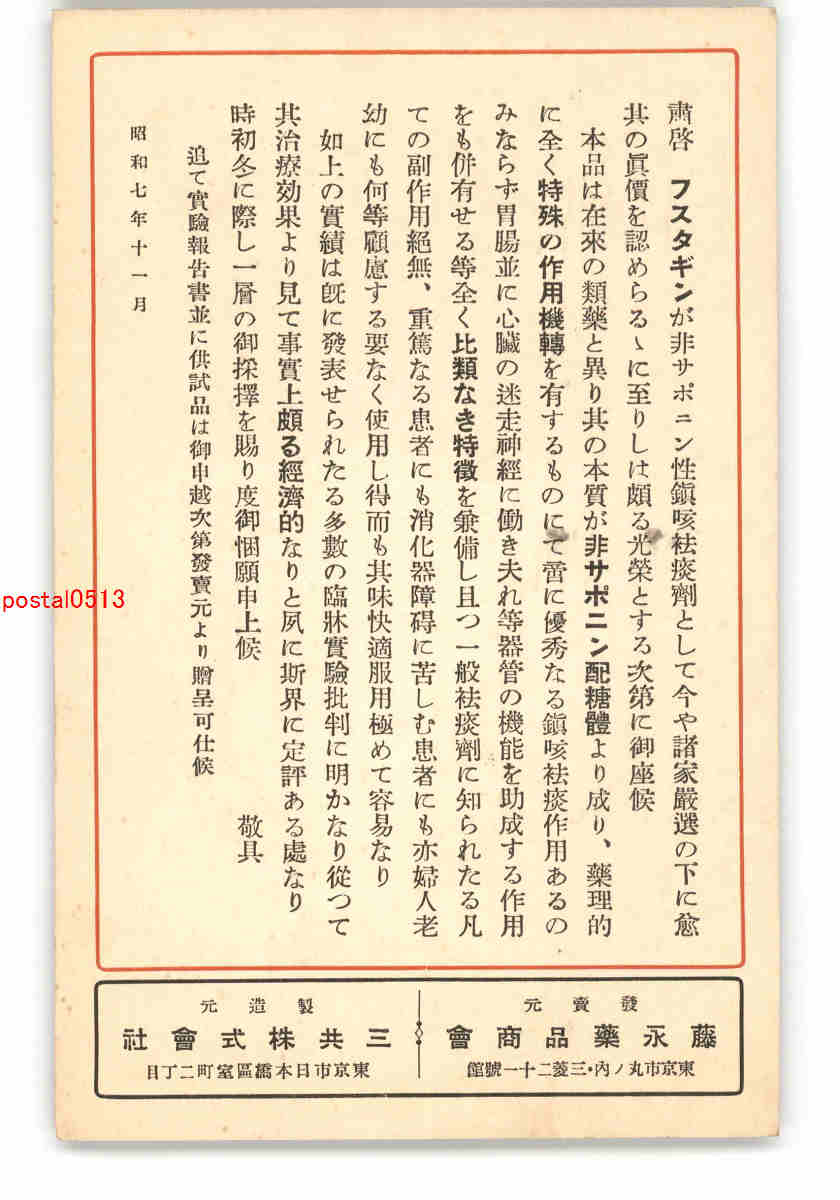 肅啓　フスタギンが非サポニン性鎭咳袪痰劑として今や諸家嚴選の下に愈
其の眞價を認めらるゝに至りしは頗る光榮とする次第に御座候
本品は在來の類藥と異り其の本質が非サポニン配糖體より成り、藥理的
に全く特殊の作用機轉を有するものにて啻に優秀なる鎭咳袪痰作用あるの
みならず胃腸並に心臟の迷走神經に働き夫れ等器管の機能を助成する作用
をも併有せる等全く比類なき特徵を兼備し且つ一般袪痰劑に知られたる凡
ての副作用絕無、重篤なる患者にも消化器障碍に苦しむ患者にも亦婦人老
幼にも何等顧慮する要なく使用し得而も其味快適服用極めて容易なり
如上の實績は旣に發表せられたる多數の臨牀實驗批判に明かなり從つて
其治療効果より見て事實上頗る經濟的なりと夙に斯界に定評ある處なり
時初冬に際し一層の御採擇を賜り度御悃願申上候　敬具
追て實驗報告書並に供試品は御申越次第發賣元より贈呈可仕候
昭和七年十一月
發賣元
藤永藥品商會
東京市丸ノ內・三菱二十一號館
製造元
三共株式會社
東京市日本橋區室町二丁目
postal0513